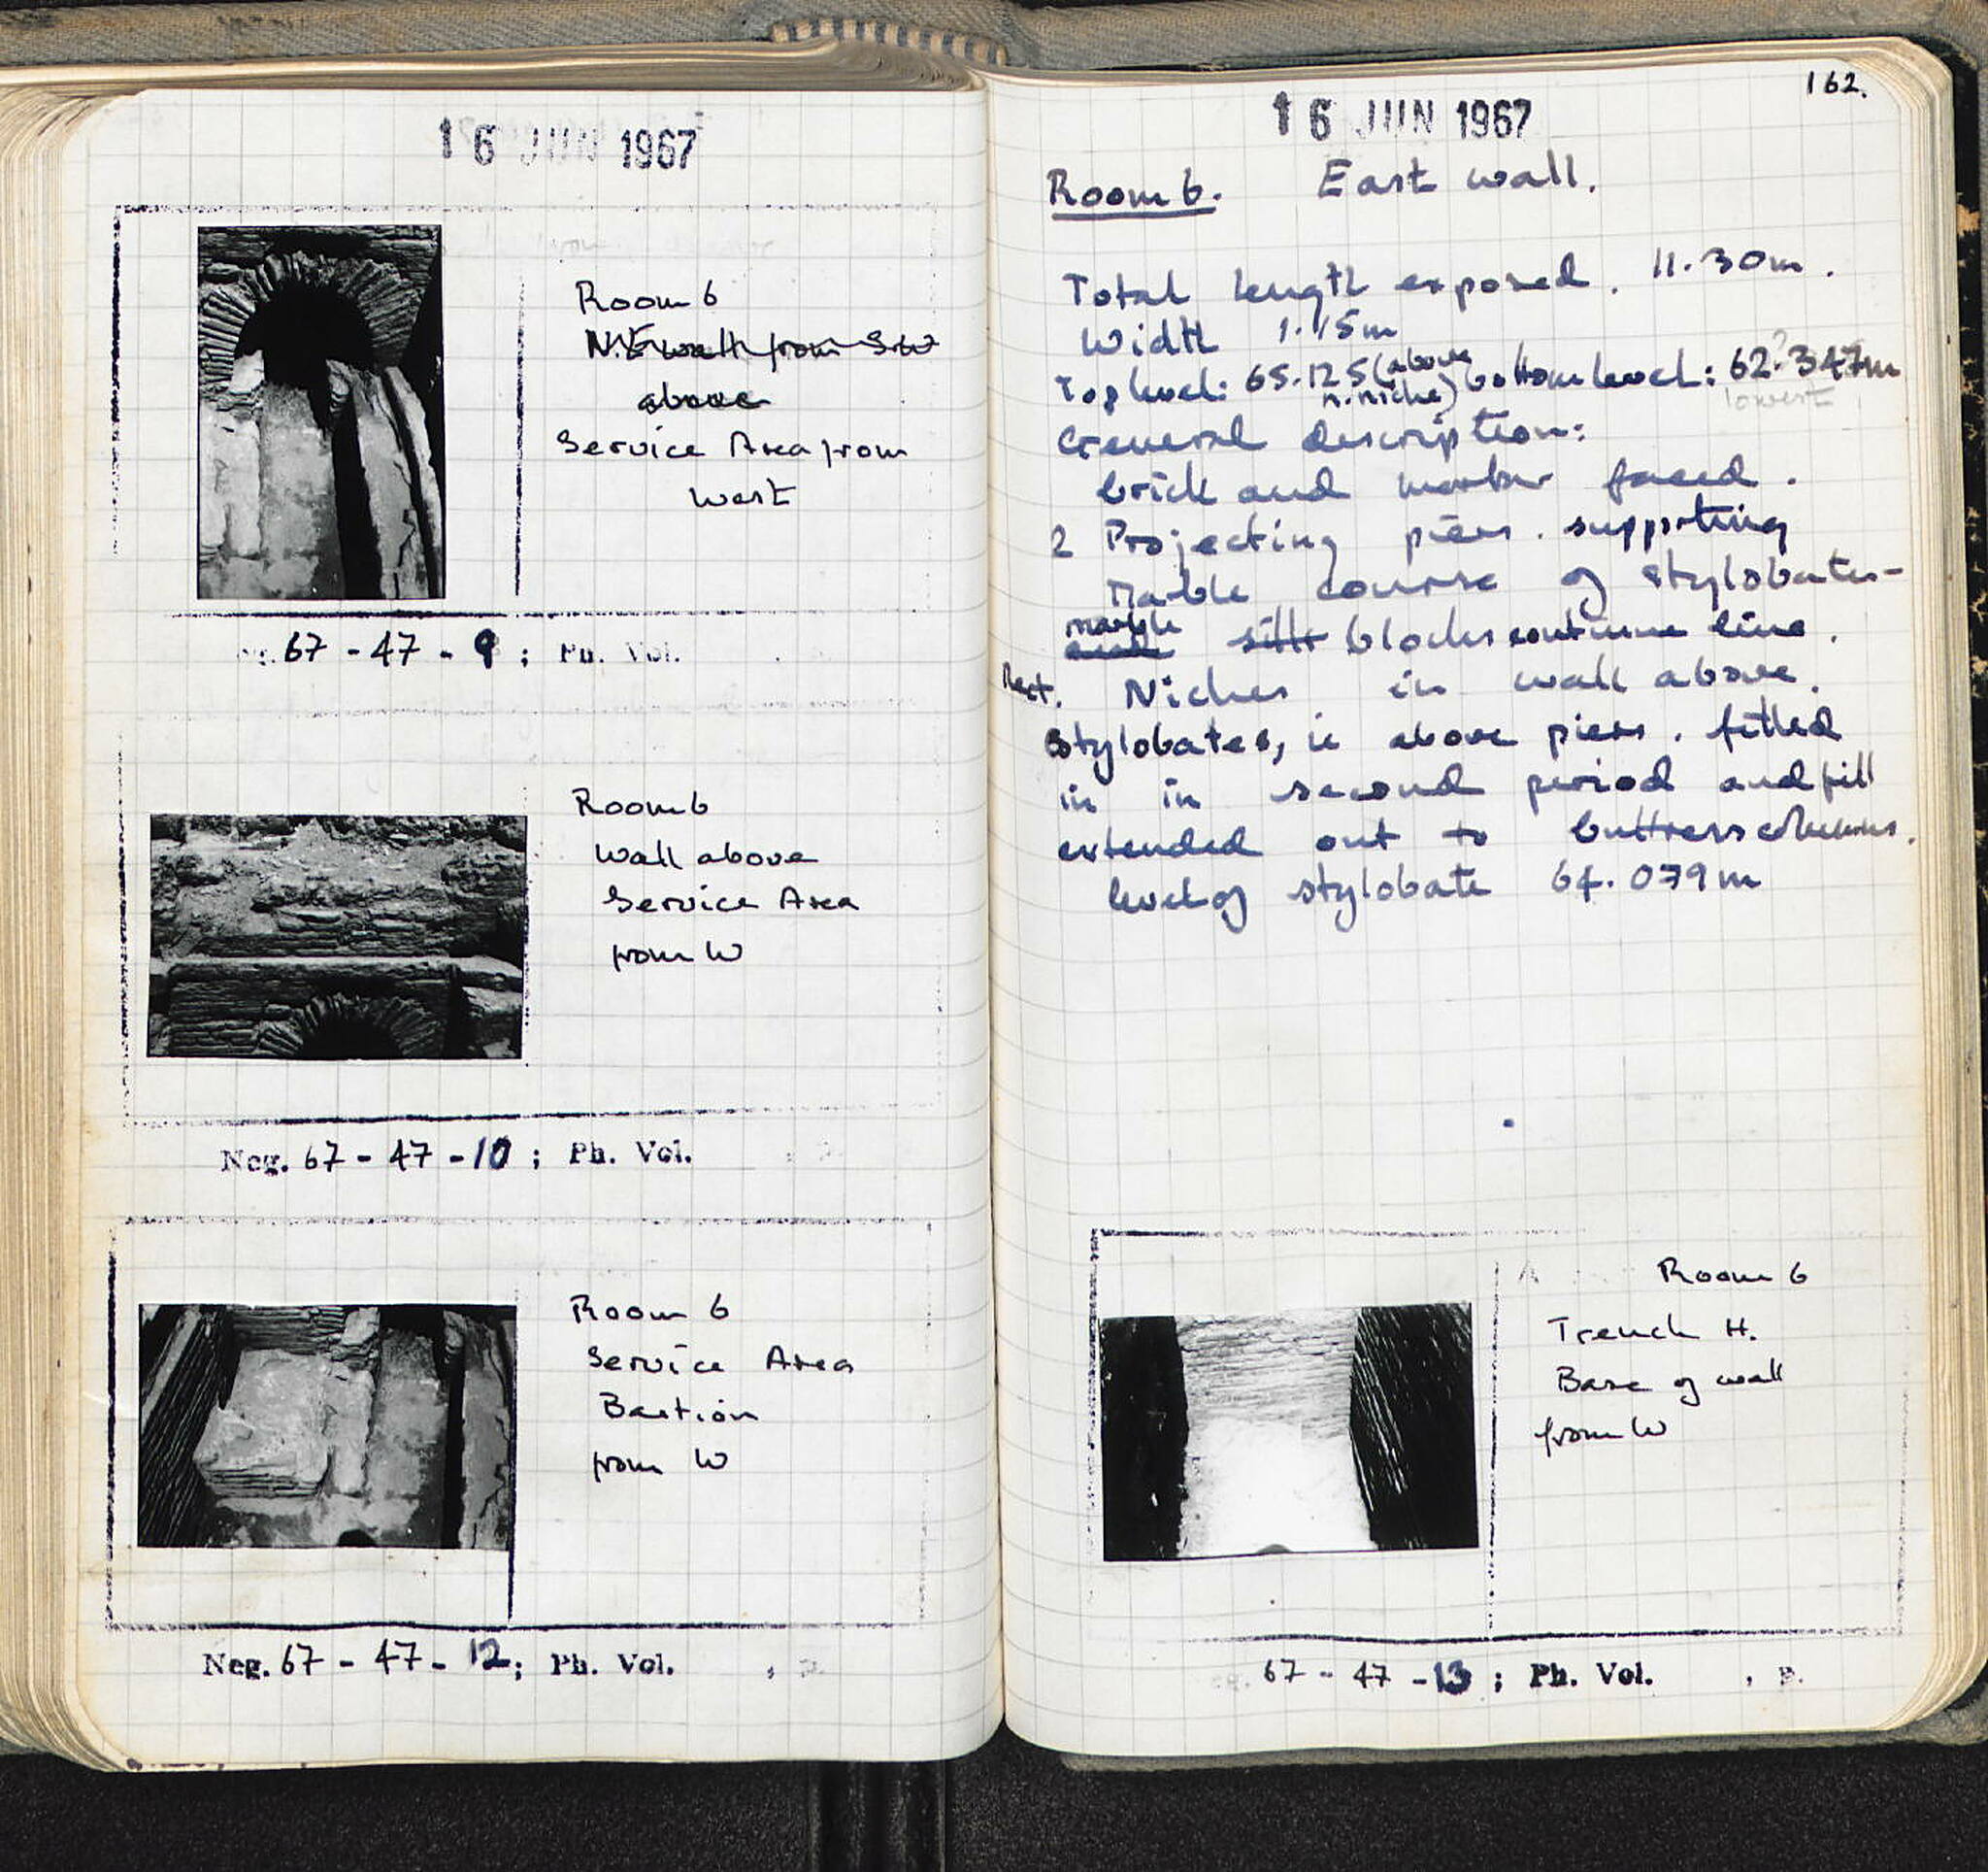 16 JUN 1967
Room 6
N.E wall from S.W
above
Service Area from
West
67 - 47 - 9 ; Ph. Vol.
Room 6
Wall above
Service Area
from W
Neg. 67 - 47 - 10 ; Ph. Vol.
Room 6
Service Area
Bastion
from W
Neg. 67 - 47 - 12 ; Ph. Vol.
162.
16 JUN 1967
Room 6. East wall.
Total length exposed. 11.30m.
Width 1.15m
Top level: 65.125 (above n. niche) bottom level: 62.347m
lowest
General description:
brick and mortar faced.
2 Projecting piers. supporting
Marble course of stylobates-
marble
and sills blocks continue line.
Rect. Niches in wall above.
Stylobates, ie above piers. filled
in in second period and fill
extended out to buttress columns.
level of stylobate 64.079m
Room 6
Trench H.
Base of wall
from W
67 - 47 - 13 ; Ph. Vol. , P.